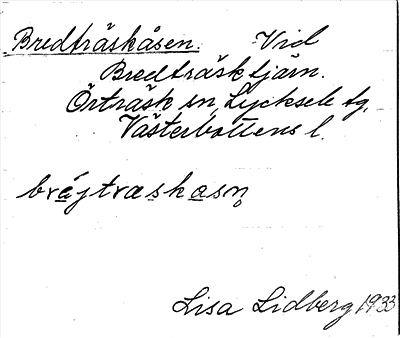 Bredträskåsen. Vid
Bredträsktjärn.
Örträsk sn, Lycksele tg.
Västerbottens l.
bräjtræskasn̥
Lisa Lidberg 1933